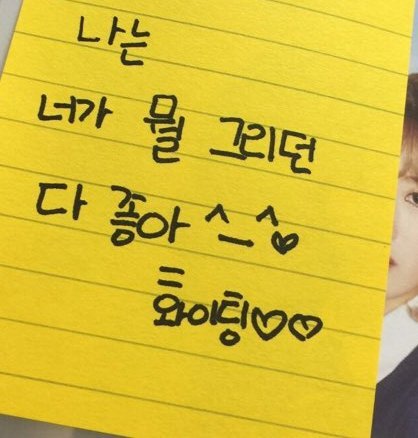 나는
너가 뭘 그리던
다 좋아 ^_^♡
화이팅♡♡